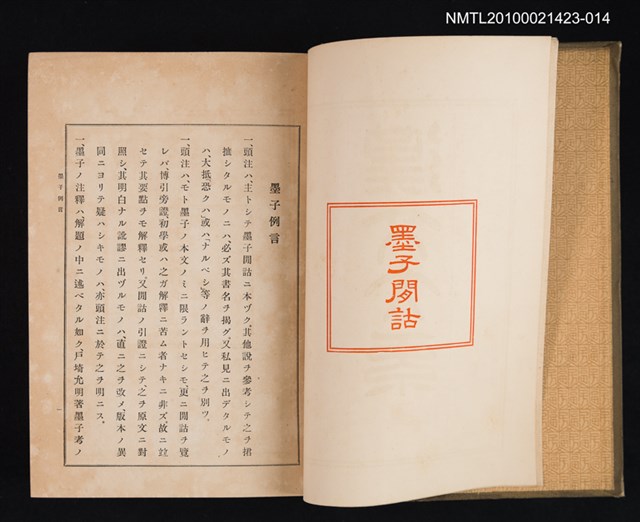 NMTL20100021423-014
墨子閒詁
墨子例言
一、頭注ハ、主トシテ墨子閒詁ニ本ヅク、其他說ヲ參考シテ之ヲ捃
摭シタルモノニハ、必ズ其書名ヲ揭グ、又私見ニ出デタルモノ
ハ、大抵、恐クハ、或ハ、ナルベシ、等ノ辭ヲ用ヒテ之ヲ別ツ。
一、頭注ハ、モト墨子ノ本文ノミニ限ラントセシモ、更ニ閒詁ヲ覽
レバ、博引旁證、初學或ハ之ガ解釋ニ苦ム者ナキニ非ズ、故ニ竝
セテ其要點ヲモ解釋セリ、又閒詁ノ引證ニシテ、之ヲ原文ニ對
照シ、其明白ナル訛謬ニ出ヅルモノハ、直ニ之ヲ改メ、版本ノ異
同ニヨリテ疑ハシキモノハ、亦頭注ニ於テ之ヲ明ニス、
一、墨子ノ注釋ハ、解題ノ中ニ述ベタル如ク、戶埼允明著墨子考ノ
墨子例言
一